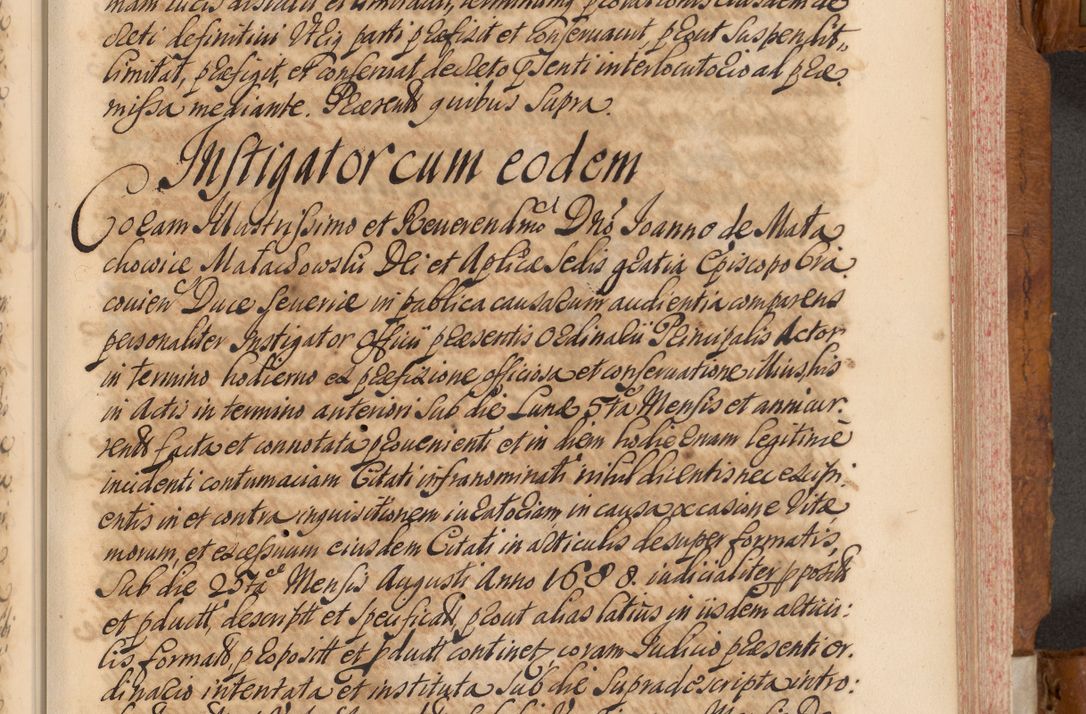 creti definitivi Utriq parti præfixit et conservavit prout suspendit,
limitat, præfigit, et conservat decreto præsenti interlocutorio ad præ
missa mediante. Præsentt quibus supra.
Instigator cum eodem
Coram Illustrissimo et Reverendmo Dno Joanne de Mała
chowice Małachowski Dei et Aplicæ Sedis gratia Episcopo Cra
covien Duce Severiæ in publica causarum audientia comparens
personaliter Instigator officii præsentis Ordinarii Principalis Actor
in termino hodierno ex præfixione officiosa et conservatione illius his
in Actis in termino anteriori sub die Lunæ 5ta Mensis et anni cur
rentt facta et connotata proveniente et in diem hodiernam legitime
incidenti contumaciam Citati infranominati nihil dicentis nec excipi
entis in et contra inquisitionem iuratoriam in causa occasione vitæ
morum, et excessuum eiusdem Citati in articulis desuper formatis,
sub die 25ta Mensis Augusti Anno 1688. iudicialiter pposit
et pduct, descript et specificat, prout alias latius in iisdem articu:
lis format, proposit et pduct continet, coram Judicio præsenti or
dinario intentata et instituta sub die supradescripta intro: